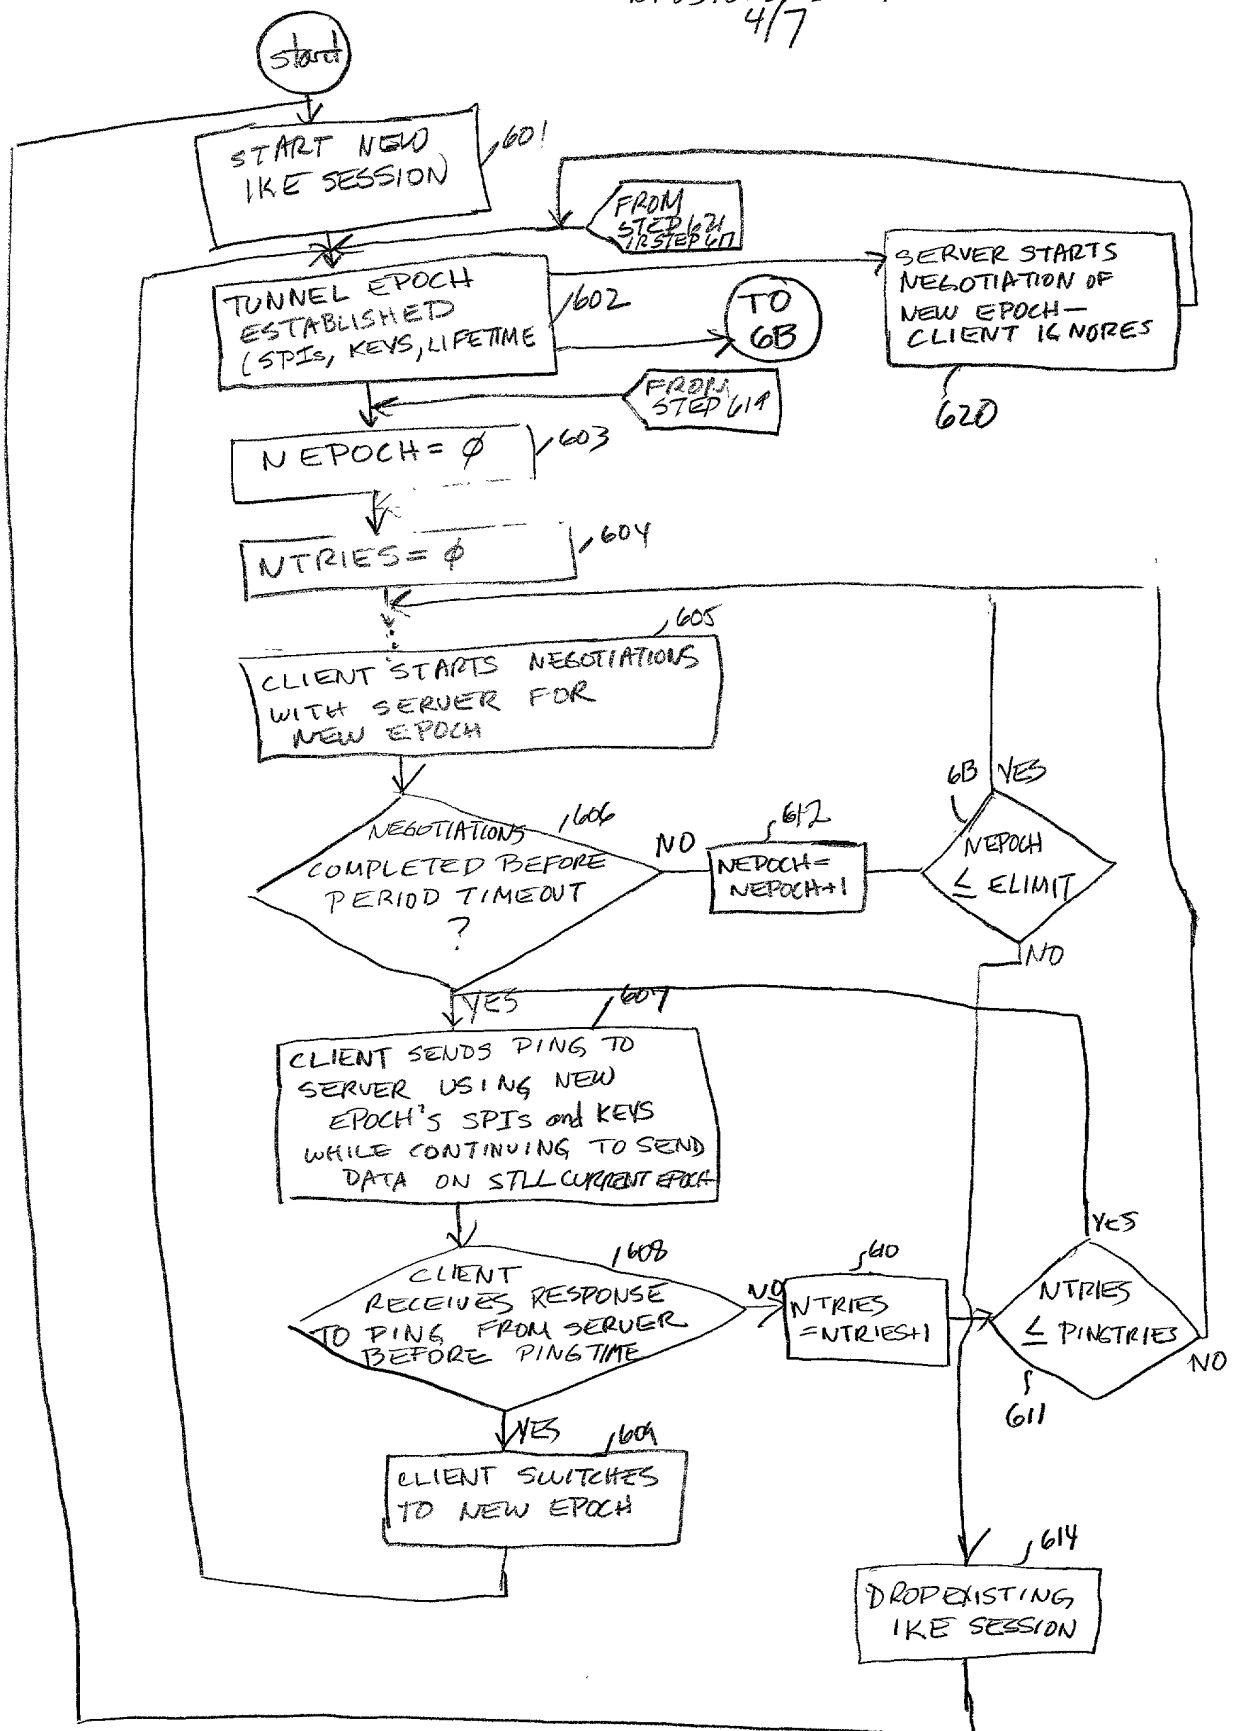 4/7
start
START NEW
IKE SESSION
601
FROM
STEP 621
TUNNEL EPOCH
ESTABLISHED
(SPIs, KEYS, LIFETIME
602
TO
6B
SERVER STARTS
NEGOTIATION OF
NEW EPOCH—
CLIENT IGNORES
620
FROM
STEP 619
NEPOCH = ϕ
603
NTRIES = ϕ
604
605
CLIENT STARTS NEGOTIATIONS
WITH SERVER FOR
NEW EPOCH
606
NEGOTIATIONS
COMPLETED BEFORE
PERIOD TIMEOUT
?
NO
612
NEPOCH=
NEPOCH+1
6B
YES
NEPOCH
≤ ELIMIT
NO
YES
607
CLIENT SENDS PING TO
SERVER USING NEW
EPOCH'S SPIs and KEYS
WHILE CONTINUING TO SEND
DATA ON STLL CURRENT EPOCH
608
CLIENT
RECEIVES RESPONSE
TO PING FROM SERVER
BEFORE PINGTIME
NO
610
NTRIES
=NTRIES+1
YES
NTRIES
≤ PINGTRIES
NO
611
YES
609
CLIENT SWITCHES
TO NEW EPOCH
614
DROP EXISTING
IKE SESSION